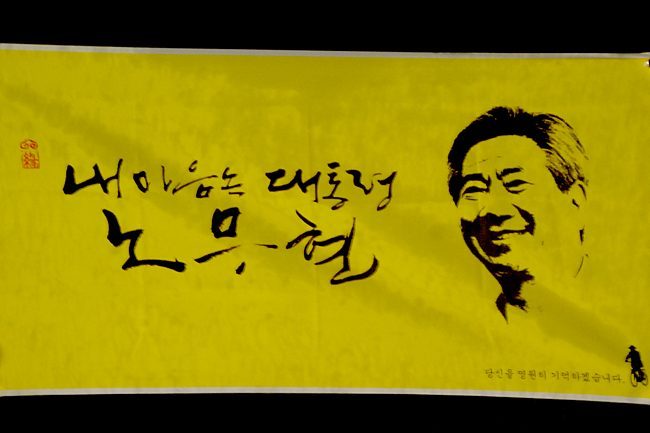 내 마음속 대통령
노무현
당신을 영원히 기억하겠습니다.